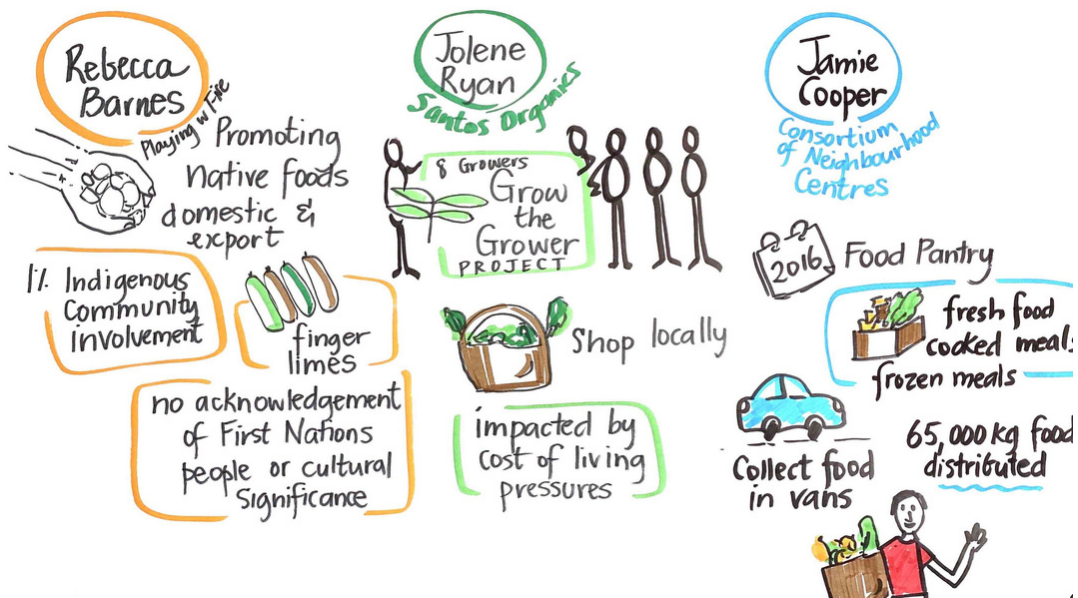 Rebecca
Barnes
Playing w Fire
Promoting
Native foods
domestic &
export
1% Indigenous
Community
involvement
finger
limes
no acknowledgement
of First Nations
people or cultural
significance
Jolene
Ryan
Santos Organics
8 Growers
Grow
the
Grower
PROJECT
Shop locally
impacted by
cost of living
pressures
Jamie
Cooper
Consortium
of Neighbourhood
Centres
2016
Food Pantry
fresh food
cooked meals
frozen meals
Collect food
in vans
65,000 kg food
distributed